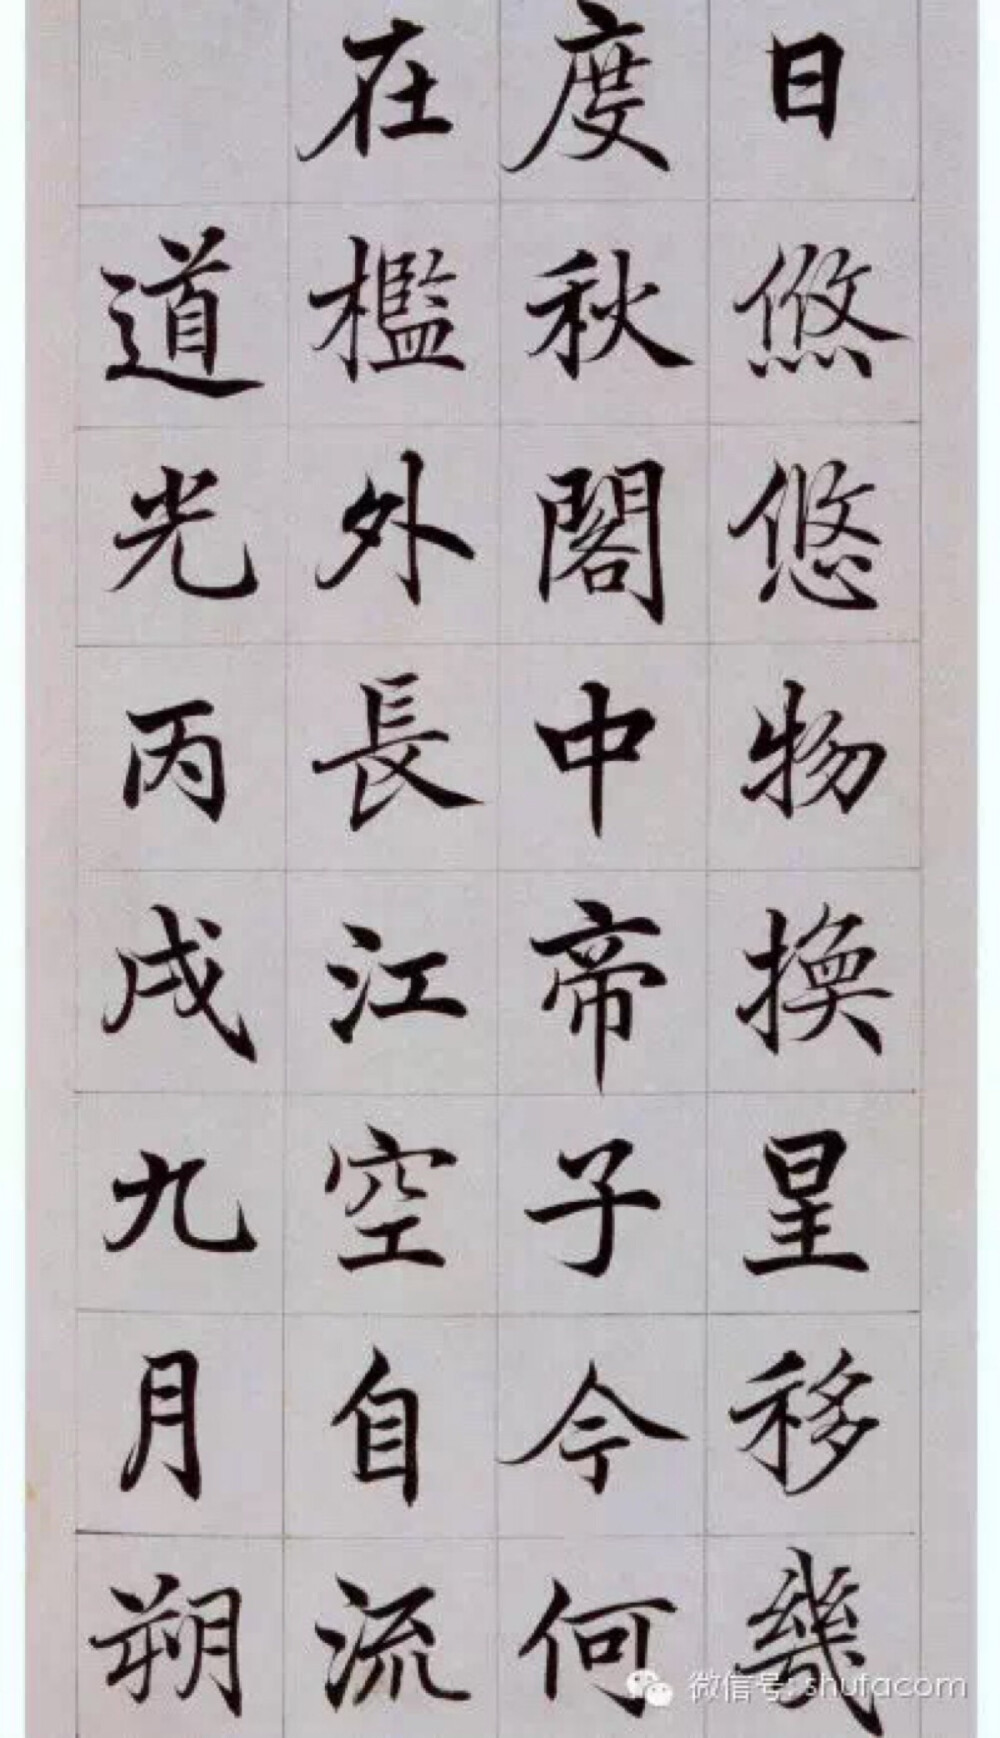 日悠悠物換星移幾
度秋閣中帝子今何
在檻外長江空自流
道光丙戌九月朔
微信号: shufacom